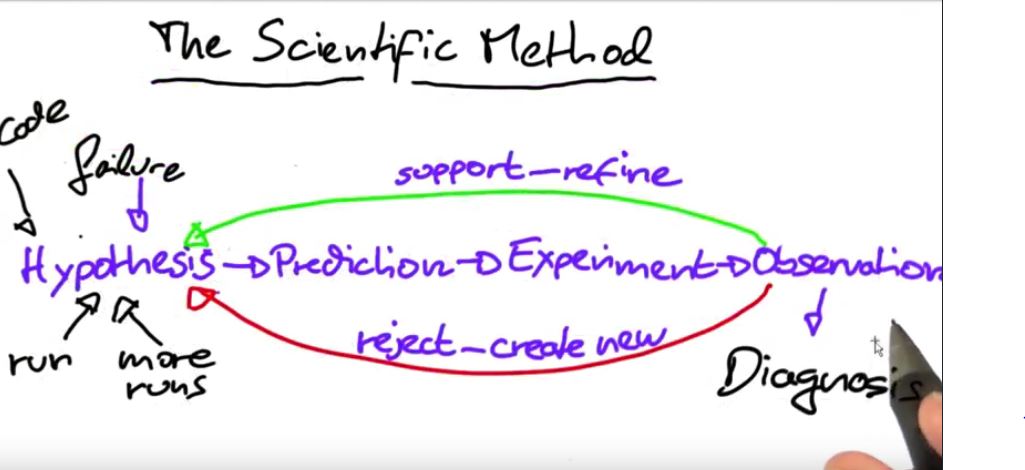 The Scientific Method
code
failure
support-refine
Hypothesis → Prediction → Experiment → Observation
reject-create new
run
more
runs
Diagnosis